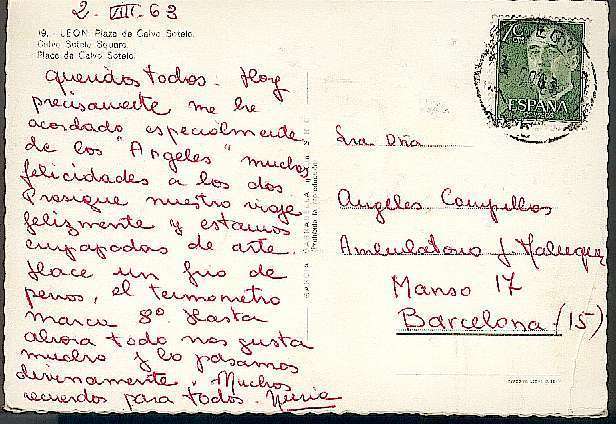 2. VIII. 63
19. - LEON. Plaza de Calvo Sotelo.
Calvo Sotelo Square.
Place de Calvo Sotelo.
Queridos todos. Hoy
precisamente me he
acordado especialmente
de los "Angeles" muchas
felicidades a los dos.
Prosigue nuestro viaje
felizmente y estamos
empapados de arte.
Hace un frio de
perros, el termometro
marca 8º. Hasta
ahora todo nos gusta
mucho y lo pasamos
divinamente. Muchos
recuerdos para todos. Nuria
ESPAÑA
Sra. Dña
Angeles Campillos
Ambulatorio J.
Manso 17
Barcelona (15)
Prohibida la reproducción